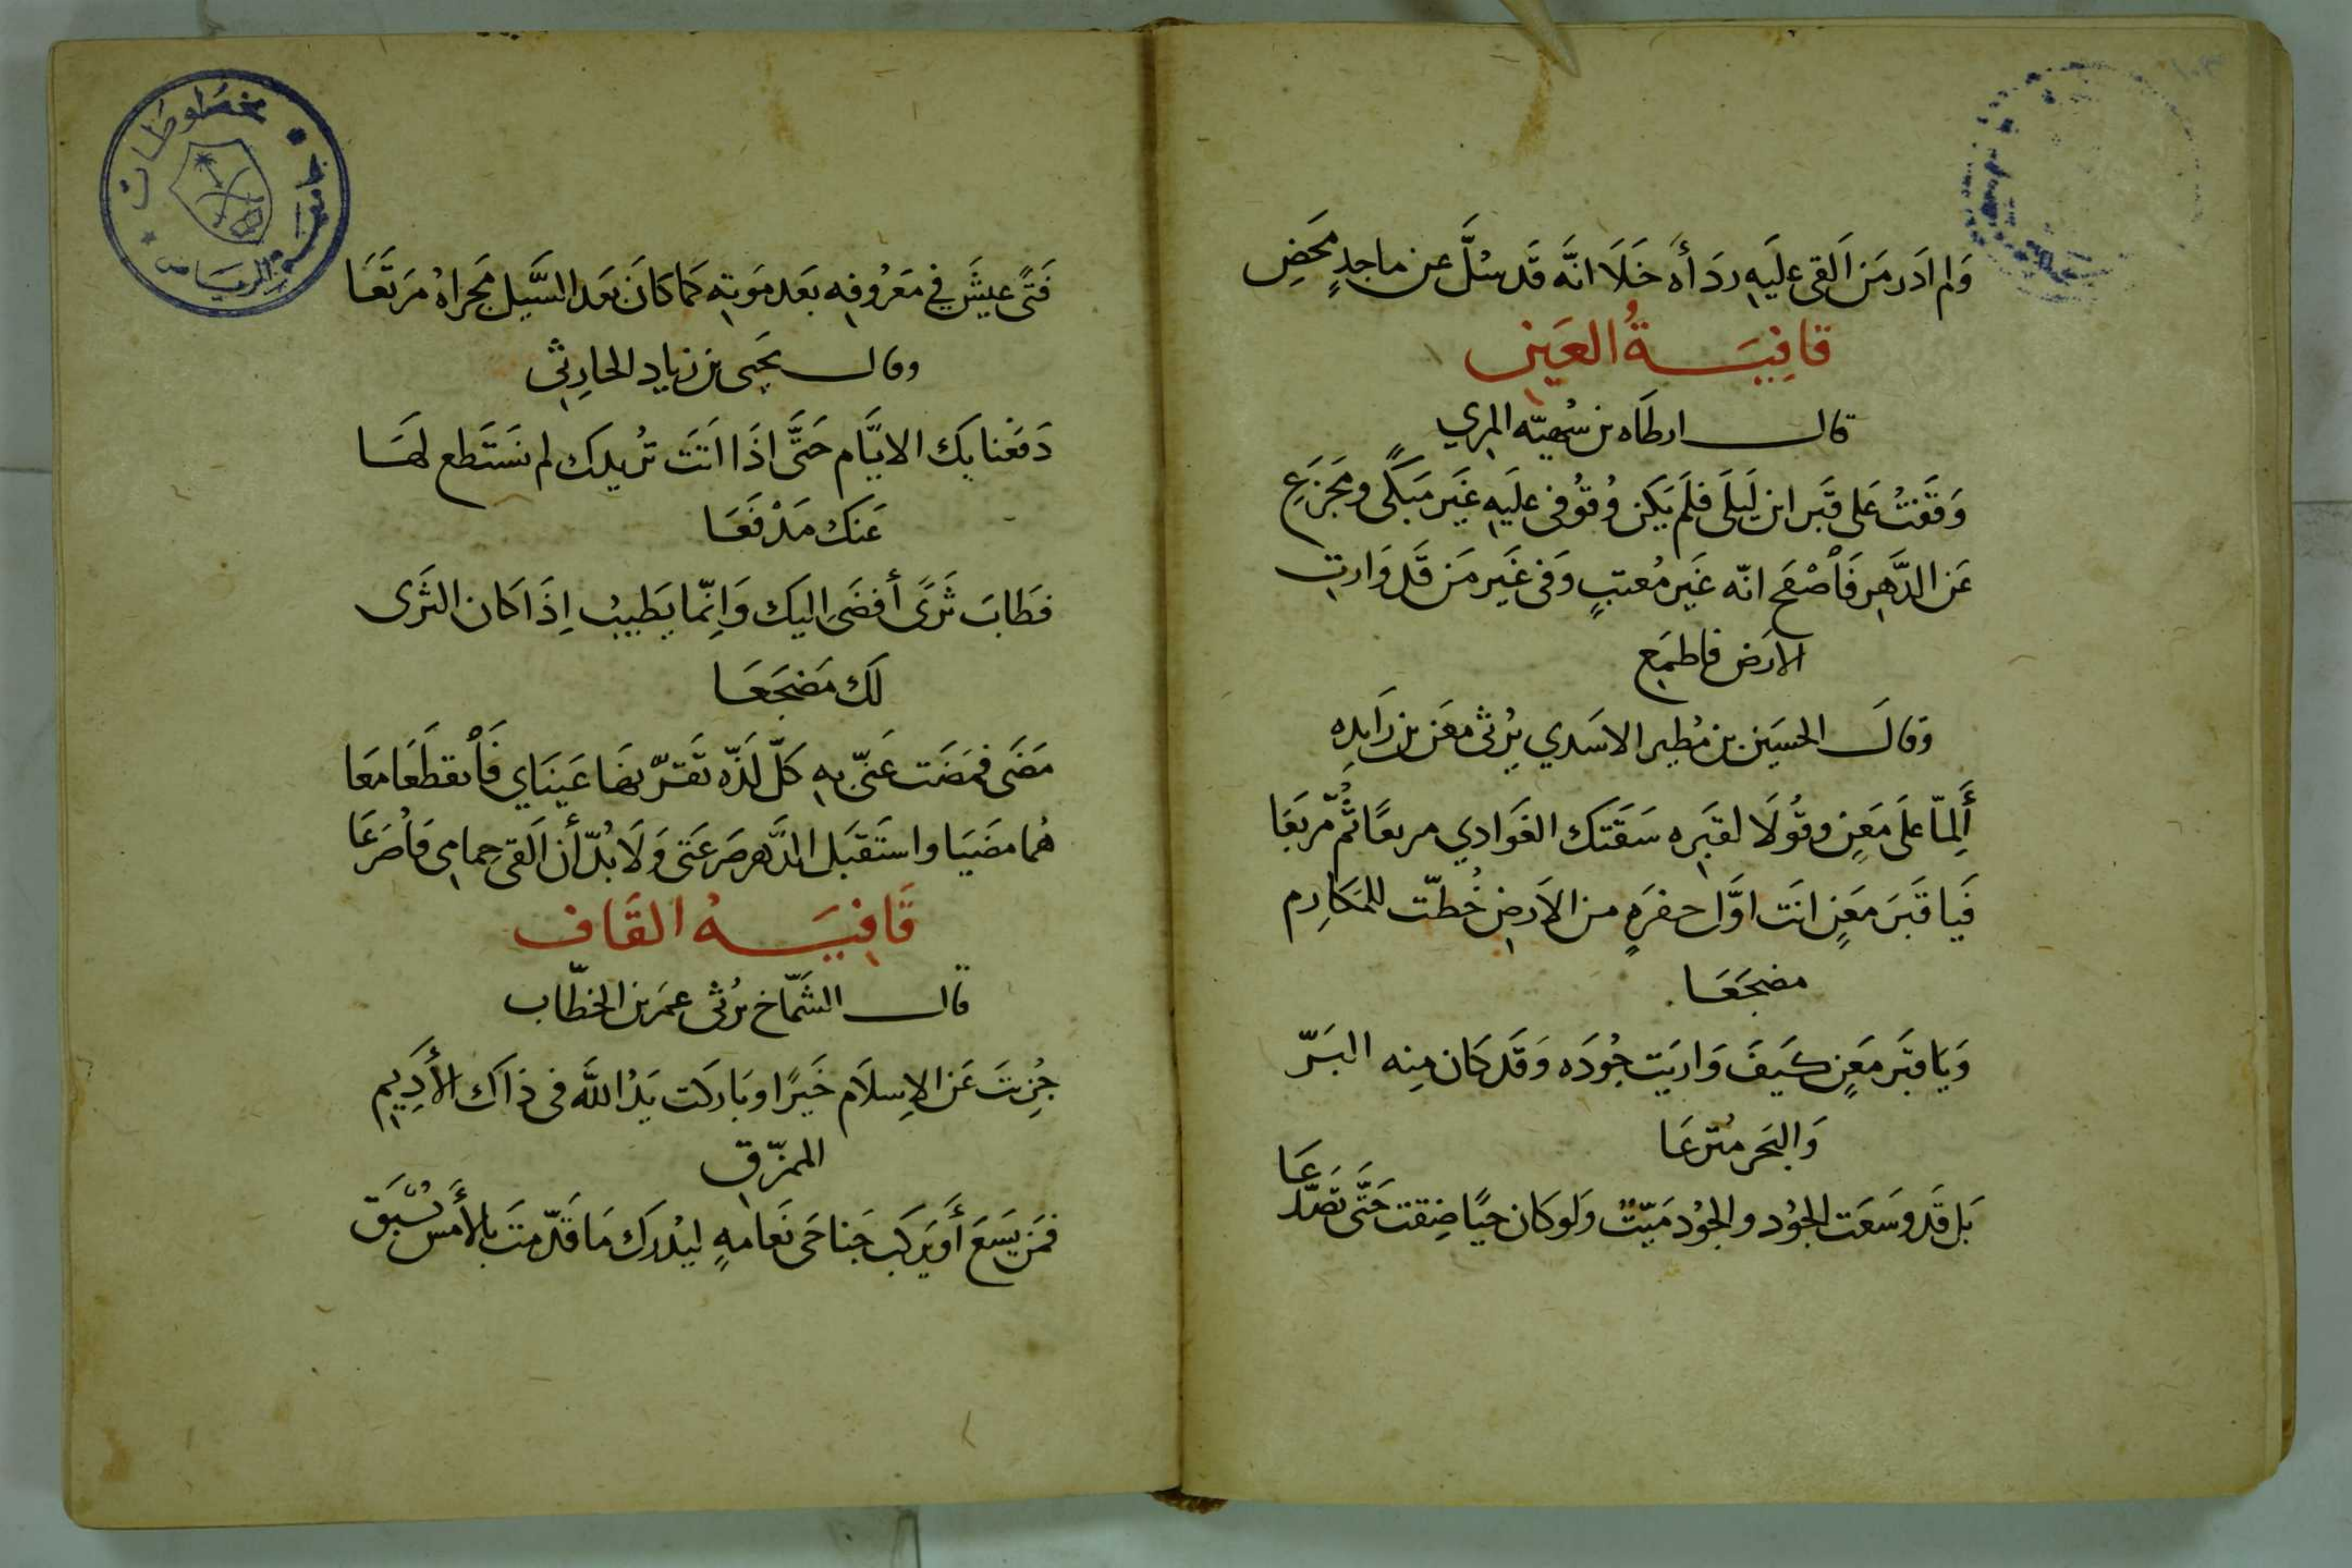 ولم ادر من القى عليه رداءه خلا انه قد سل عن ماجد محض
قافية العين
قال ارطاه بن سهيه المري
وقفت على قبر ابن ليلى فلم يكن وقوفى عليه غير مبكى ومجزع
عن الدهر فاصفح انه غير معتب وفى غير من قد وارت
الارض فاطمع
وقال الحسين بن مطير الاسدي يرثى معن بن زايده
ألما على معن وقولا لقبره سقتك الغوادي مربعا ثم مربعا
فيا قبر معن انت اول حفره من الارض خطت للمكارم
مضجعا
ويا قبر معن كيف واريت جوده وقد كان منه البر
والبحر مترعا
بل قد وسعت الجود والجود ميت ولو كان حيا ضقت حتى تصدعا
فتى عيش في معروفه بعد موته كما كان بعد السيل مجراه مرتعا
وقال يحيى بن زياد الحارثي
دفعنا بك الايام حتى اذا اتت تريدك لم نستطع لها
عنك مدفعا
فطاب ثرى أفضى اليك وانما يطيب اذا كان الثرى
لك مضجعا
مضى فمضت عنى به كل لذه تقر بها عيناي فانقطعا معا
هما مضيا واستقبل الدهر صرعتى ولا بد أن القى حمامى فاصرعا
قافيه القاف
قال الشماخ يرثى عمر بن الخطاب
جزيت عن الاسلام خيرا وباركت يد الله فى ذاك الأديم
الممزق
فمن يسع أو يركب جناحى نعامه ليدرك ما قدمت بالأمس يسبق
مخطوطات
الرياض